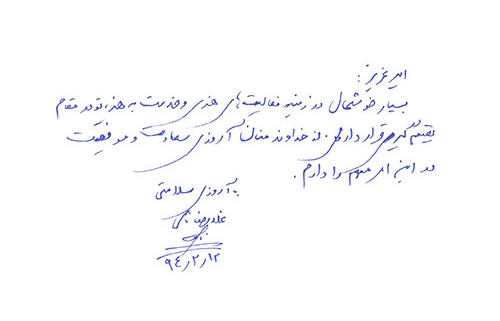 امیر عزیز:
بسیار خوشحالم در زمینه فعالیت‌های هنری و خدمت به هنر، تو در مقام
قرار داری از خداوند منان آرزوی سعادت و موفقیت
در این امر مهم را دارم.
با آرزوی سلامتی
غلامرضا
۹۴/۲/۱۲